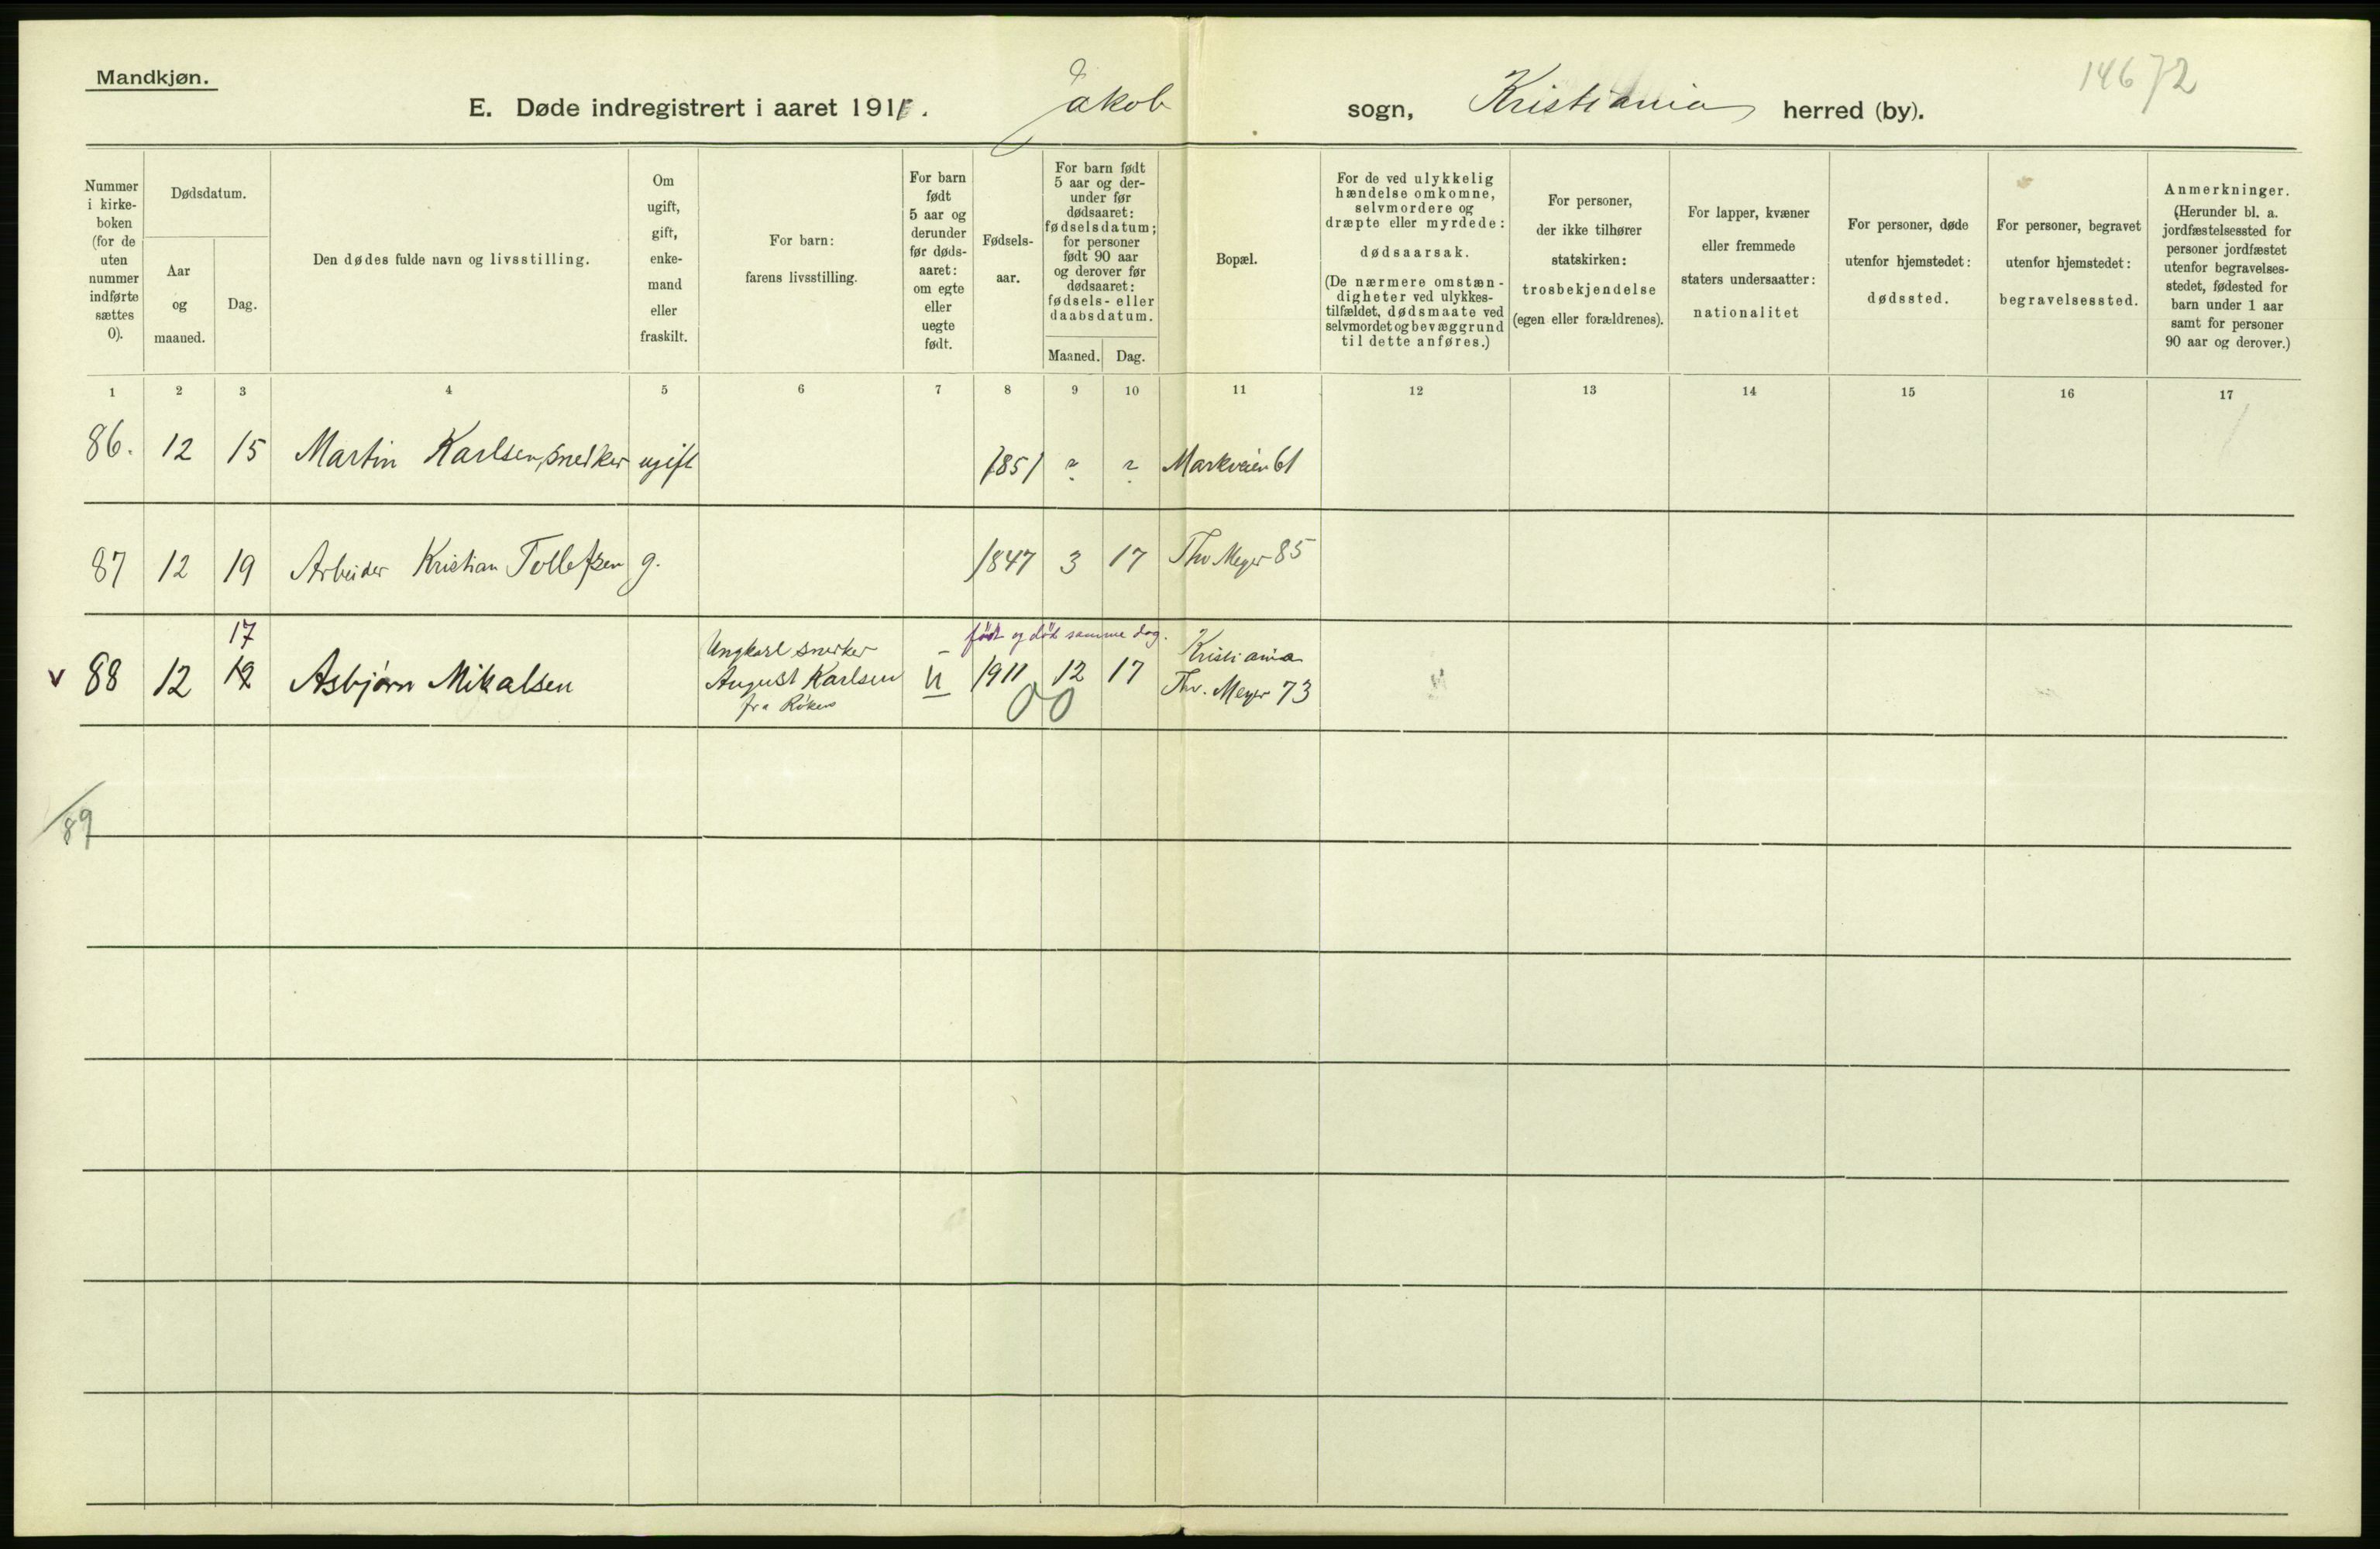 Mandkjøn.
E. Døde indregistrert i aaret 1911. Jakob sogn, Kristiania herred (by).
14672
Nummer
i kirke-
boken
(for de
uten
nummer
indførte
sættes
0).
Dødsdatum.
Aar
og
maaned.
Dag.
Den dødes fulde navn og livsstilling.
Om
ugift,
gift,
enke-
mand
eller
fraskilt.
For barn:
farens livsstilling.
For barn
født
5 aar og
derunder
før døds-
aaret:
om egte
eller
uegte
født.
Fødsels-
aar.
For barn født
5 aar og der-
under før
dødsaaret:
fødselsdatum;
for personer
født 90 aar
og derover før
dødsaaret:
fødsels- eller
daabsdatum.
Maaned. Dag.
Bopæl.
For de ved ulykkelig
hændelse omkomne,
selvmordere og
dræpte eller myrdede:
dødsaarsak.
(De nærmere omstæn-
digheter ved ulykkes-
tilfældet, dødsmaate ved
selvmordet og bevæggrund
til dette anføres.)
For personer,
der ikke tilhører
statskirken:
trosbekjendelse
(egen eller forældrenes).
For lapper, kvæner
eller fremmede
staters undersaatter:
nationalitet
For personer, døde
utenfor hjemstedet:
dødssted.
For personer, begravet
utenfor hjemstedet:
begravelsessted.
Anmerkninger.
(Herunder bl. a.
jordfæstelsessted for
personer jordfæstet
utenfor begravelses-
stedet, fødested for
barn under 1 aar
samt for personer
90 aar og derover.)
1 2 3 4 5 6 7 8 9 10 11 12 13 14 15 16 17
86. 12 15 Martin Karlsen, snekker ugift 1851 ? ? Markveien 61
87 12 19 Arbeider Kristian Tollefsen g. 1847 3 17 Thv Meyer 85
17 født og død samme dag.
Ungkarl snekker Kristiania
v 88 12 12 Asbjørn Mikalsen August Karlsen U 1911 12 17 Thv. Meyer 73
fra Røken 00
89